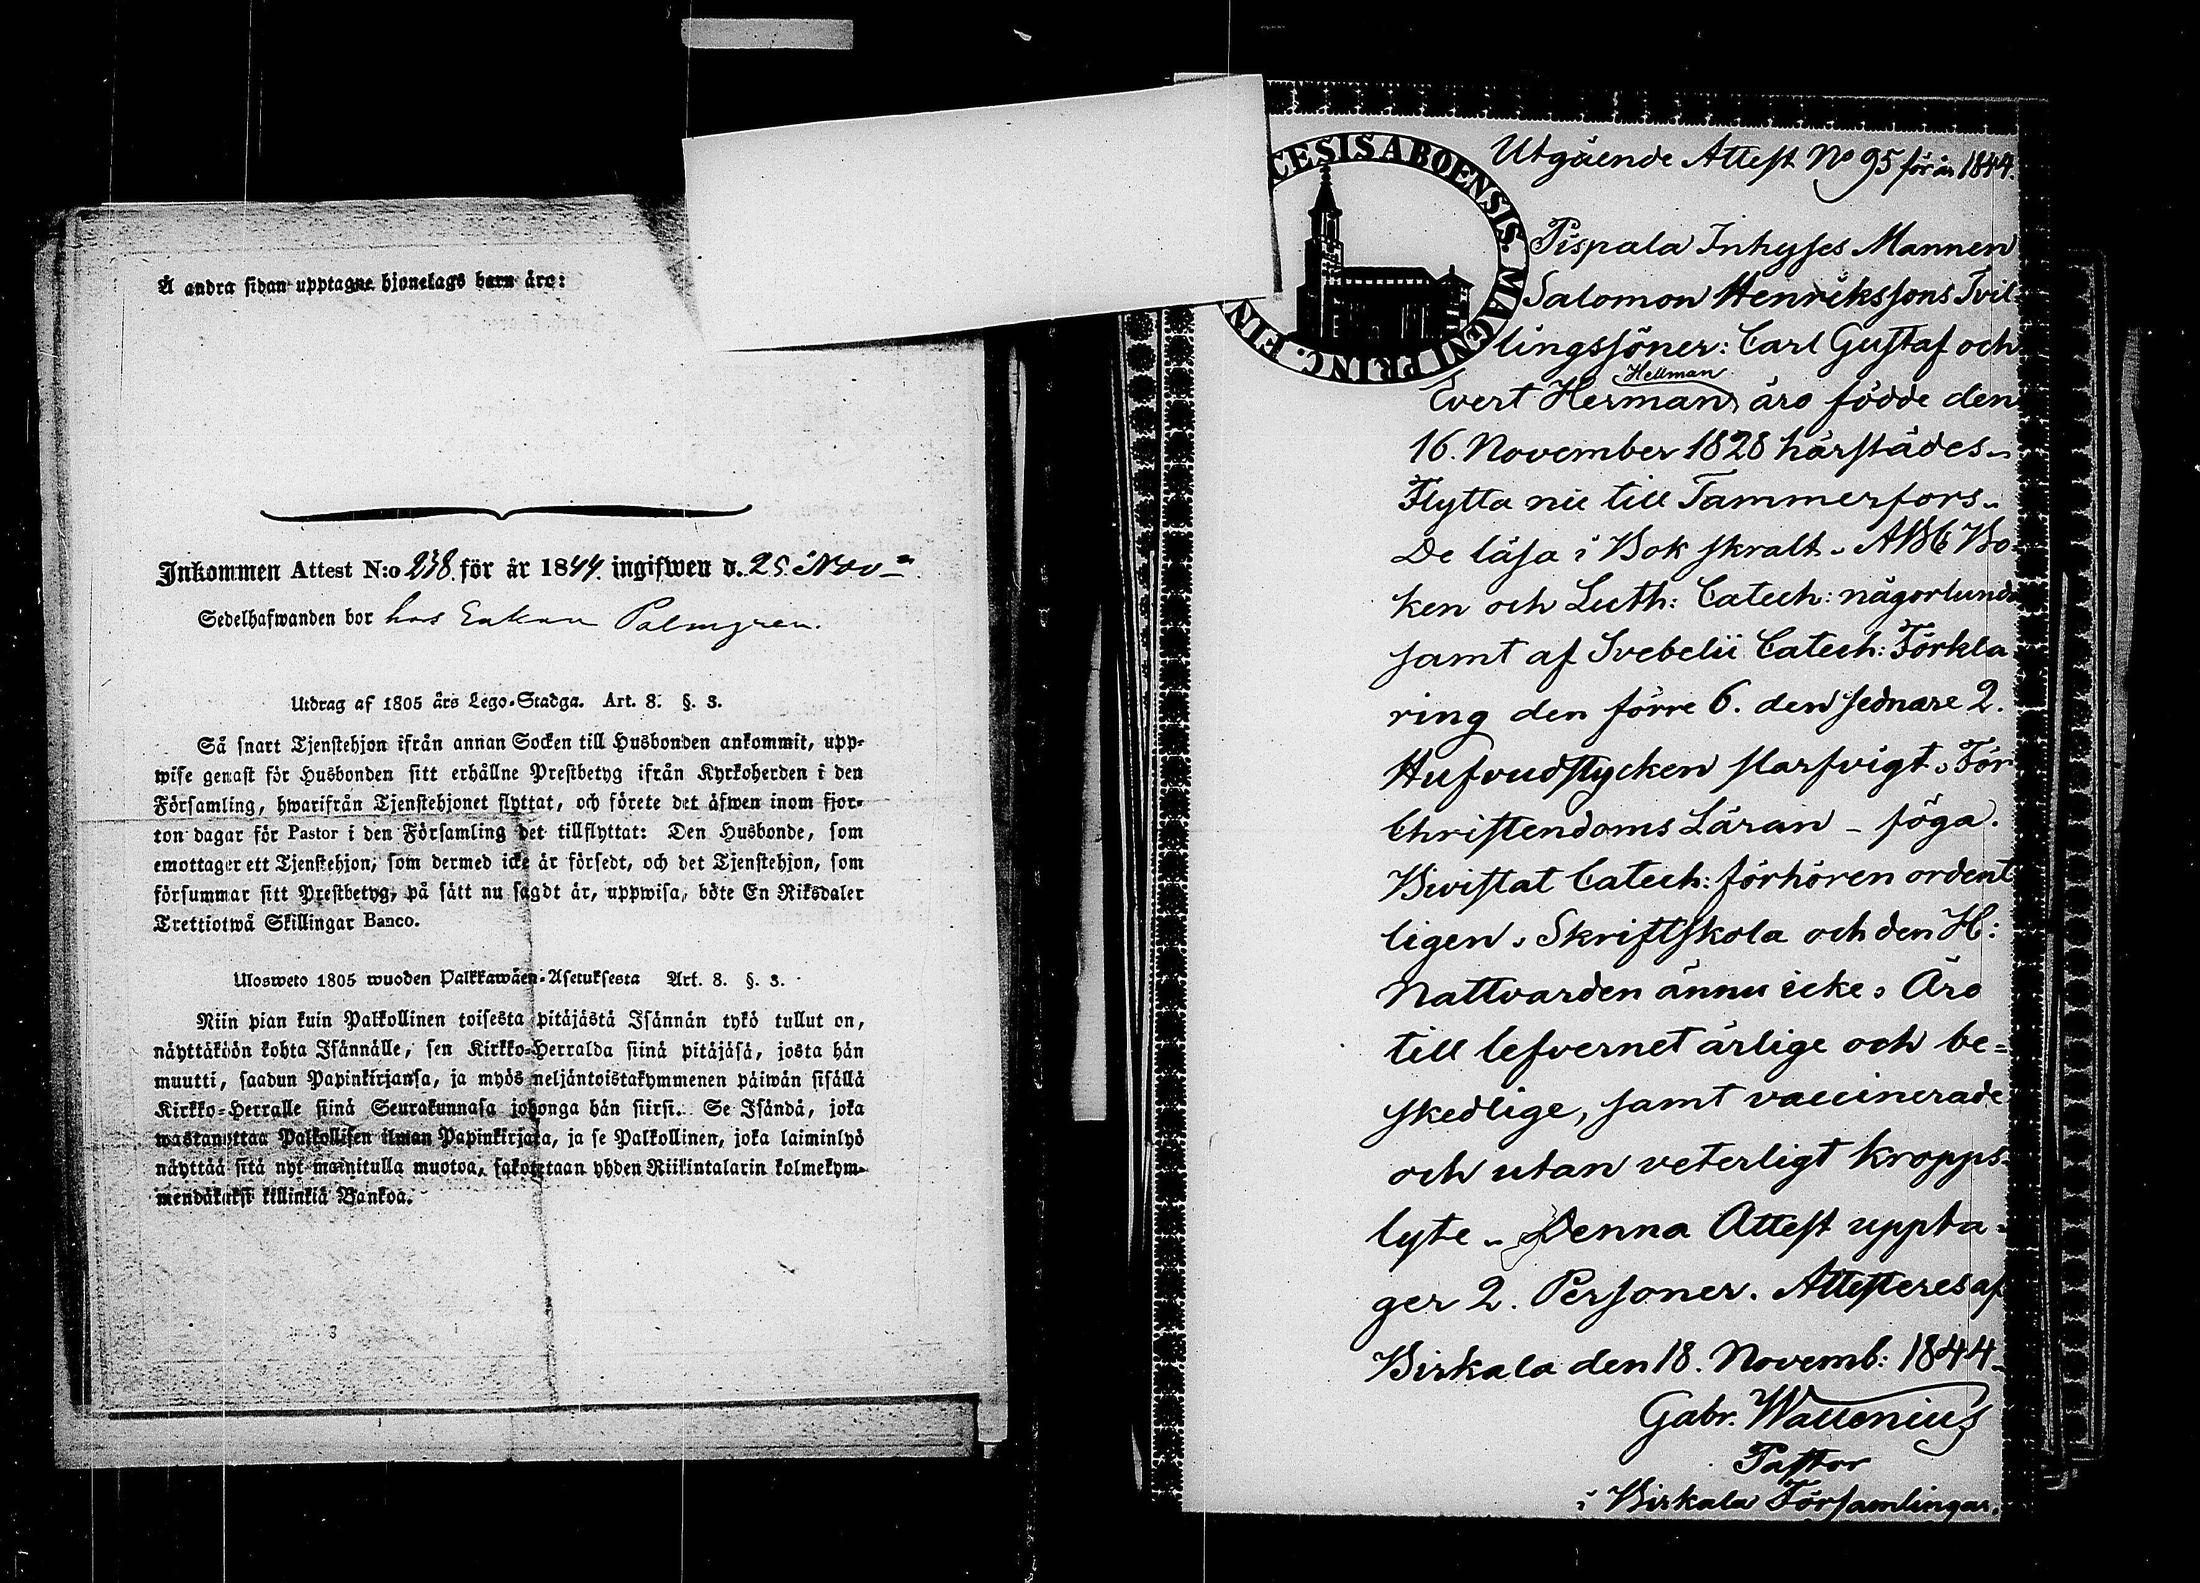 Å andra sidan upptagne hjonelags barn äro:
Inkommen Attest N:o 238. för år 1844. ingifwen d. 25 Nov
Sedelhafwanden bor hos Enkan Palmgren.
Utdrag af 1805 års Lego-Stadga. Art. 8. §. 3.
Så snart Tjenstehjon ifrån annan Socken till Husbonden ankommit, upp-
wise genast för Husbonden sitt erhållne Prestbetyg ifrån Kyrkoherden i den
Församling, hwarifrån Tjenstehjonet flyttat, och förete det äfwen inom fjor-
ton dagar för Pastor i den Församling det tillflyttat: Den Husbonde, som
emottager ett Tjenstehjon, som dermed icke är försedt, och det Tjenstehjon, som
försummar sitt Prestbetyg, på sätt nu sagdt är, uppwisa, böte En Riksdaler
Trettiotwå Skillingar Banco.
Ulosweto 1805 wuoden Palkkawäen-Asetuksesta Art. 8. §. 3.
Niin pian kuin Palkollinen toisesta pitäjästä Isännän tykö tullut on,
näyttäköön kohta Isännälle, sen Kirkko-Herralda siinä pitäjäsä, josta hän
muutti, saadun Papinkirjansa, ja myös neljäntoistakymmenen päiwän sisällä
Kirkko-Herralle siinä Seurakunnasa johonga hän siirsi. Se Isändä, joka
wastanottaa Palkollisen ilman Papinkirjata, ja se Palkollinen, joka laiminlyö
näyttää sitä nyt mainitulla muotoa, sakotetaan yhden Riikintalarin kolmekym-
mendäkaksi killinkiä Bankoa.
CESIS ABOENSIS. MAGNI PRINC. FIN
Utgående Attest No 95 för år 1844.
Pispala Inhyses Mannen
Salomon Henrikssons Tvil-
lingssöner: Carl Gustaf och
Hellman
Evert Herman, äro födde den
16. November 1828 härstädes.
Flytta nu till Tammerfors.
De läsa i Bok skralt. ABC Bo-
ken och Luth: Catech: någorlunda
samt af Svebelii Catech: Förkla
ring den förre 6. den sednare 2.
Hufvudstycken slarfvigt. För
Christendoms Läran - föga.
Bivistat Catech: förhören ordent
ligen. Skriftskola och den H:
Nattvarden ännu icke. Äro
till lefvernet ärlige och be-
skedlige, samt vaccinerade
och utan veterligt kropps-
lyte. Denna Attest uppta-
ger 2. Personer. Attesteres af
Birkala den 18. Novemb: 1844.
Gabr. Wallenius
Pastor
i Birkala Församlingar.